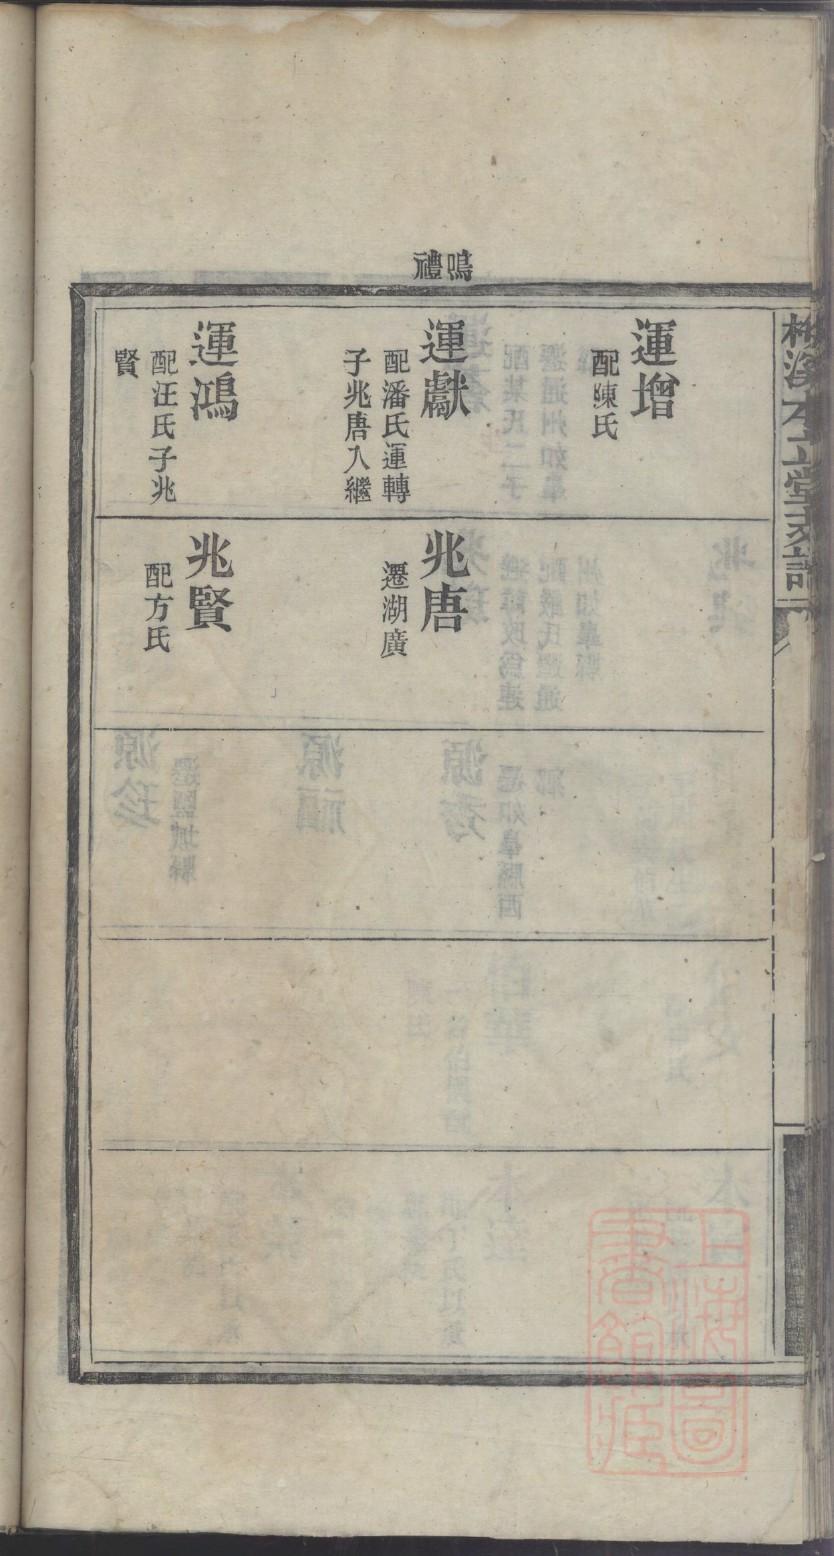 鳴禮
運增
配陳氏
運獻
配潘氏運轉
子兆唐入繼
運鴻
配汪氏子兆
賢
兆唐
遷湖廣
兆賢
配方氏
上海圖
書館藏